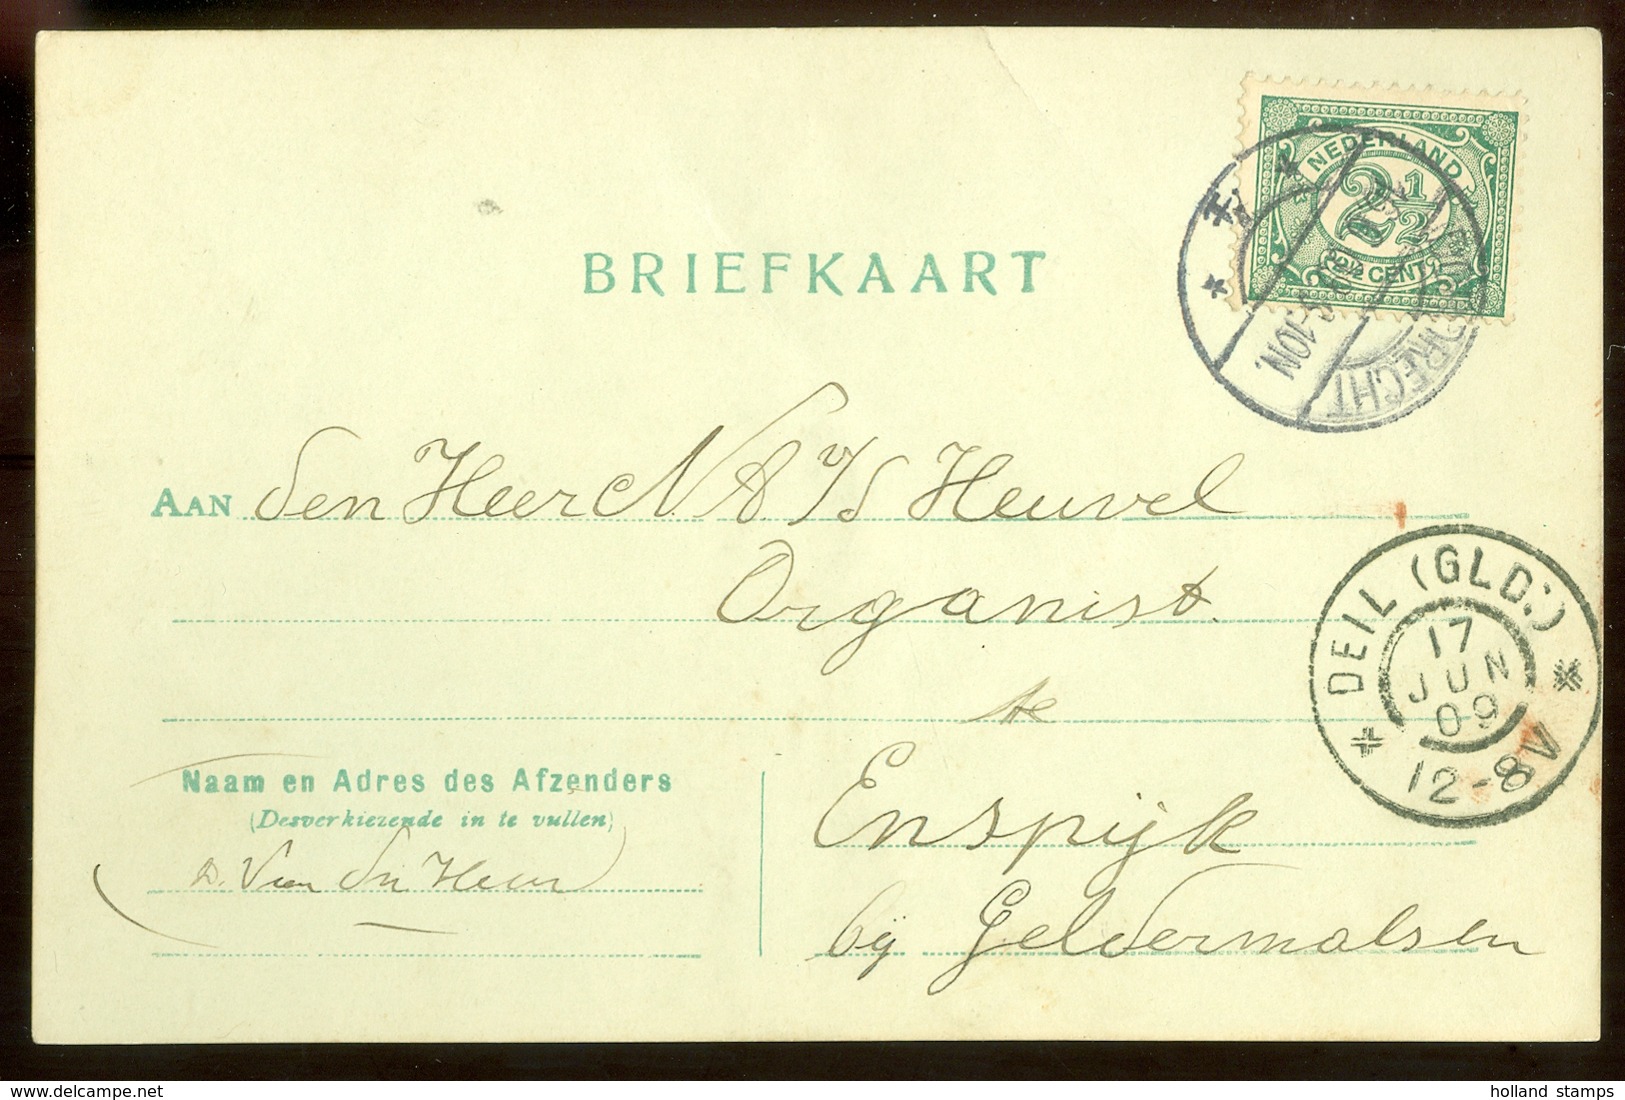 NEDERLAND
2½
2½ CENT
DRECHT
10N.
BRIEFKAART
AAN den Heer N. A. v/d Heuvel
Organist
te
Enspijk
bij Geldermalsen
DEIL (GLD.)
17
JUN
09
12-8V
Naam en Adres des Afzenders
(Desverkiezende in te vullen)
D. Van den Heuv
©delcampe.net
holland stamps